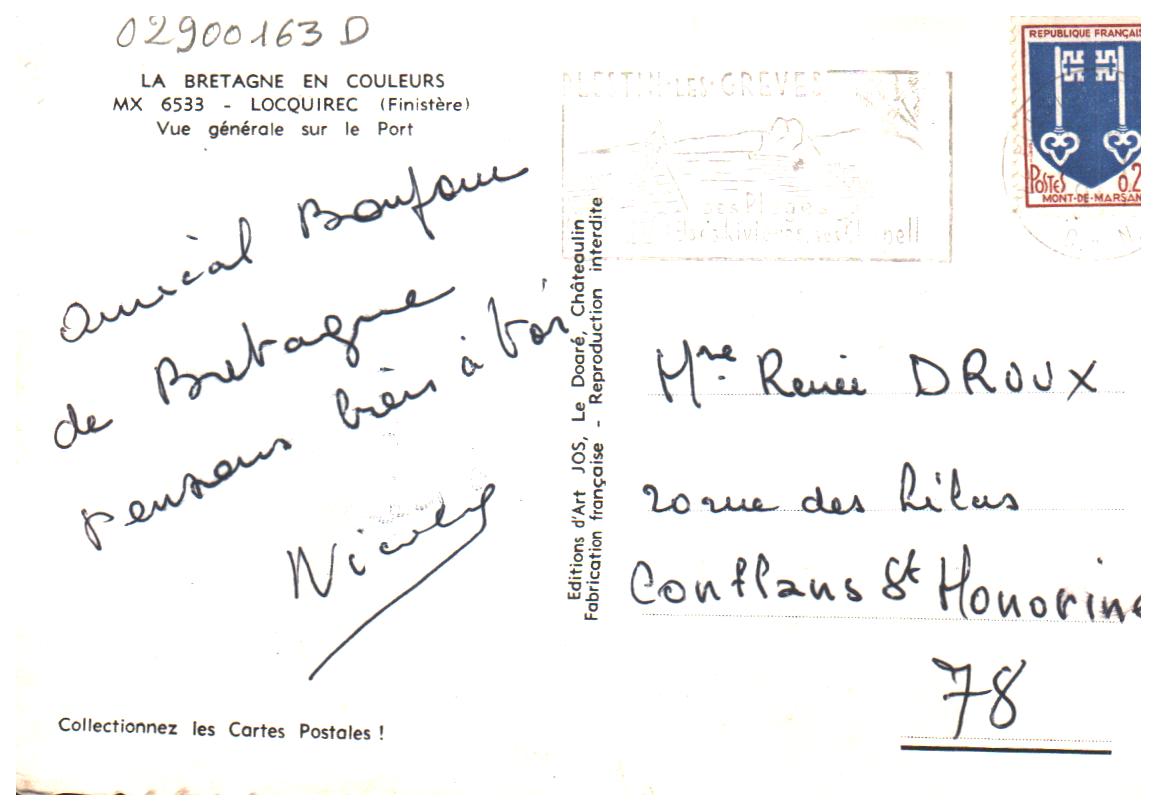 02900163 D
LA BRETAGNE EN COULEURS
MX 6533 - LOCQUIREC (Finistère)
Vue générale sur le Port
amical Bonjour
de Bretagne
pensons bien à toi
Collectionnez les Cartes Postales !
Editions d'Art JOS, Le Doaré, Châteaulin
Fabrication française - Reproduction interdite
PLESTIN·LES·GREVES
REPUBLIQUE FRANÇAIS
POSTES 0.2
MONT-DE-MARSAN
Mme Renée DROUX
20 rue des Lilas
Conflans St Honorine
78